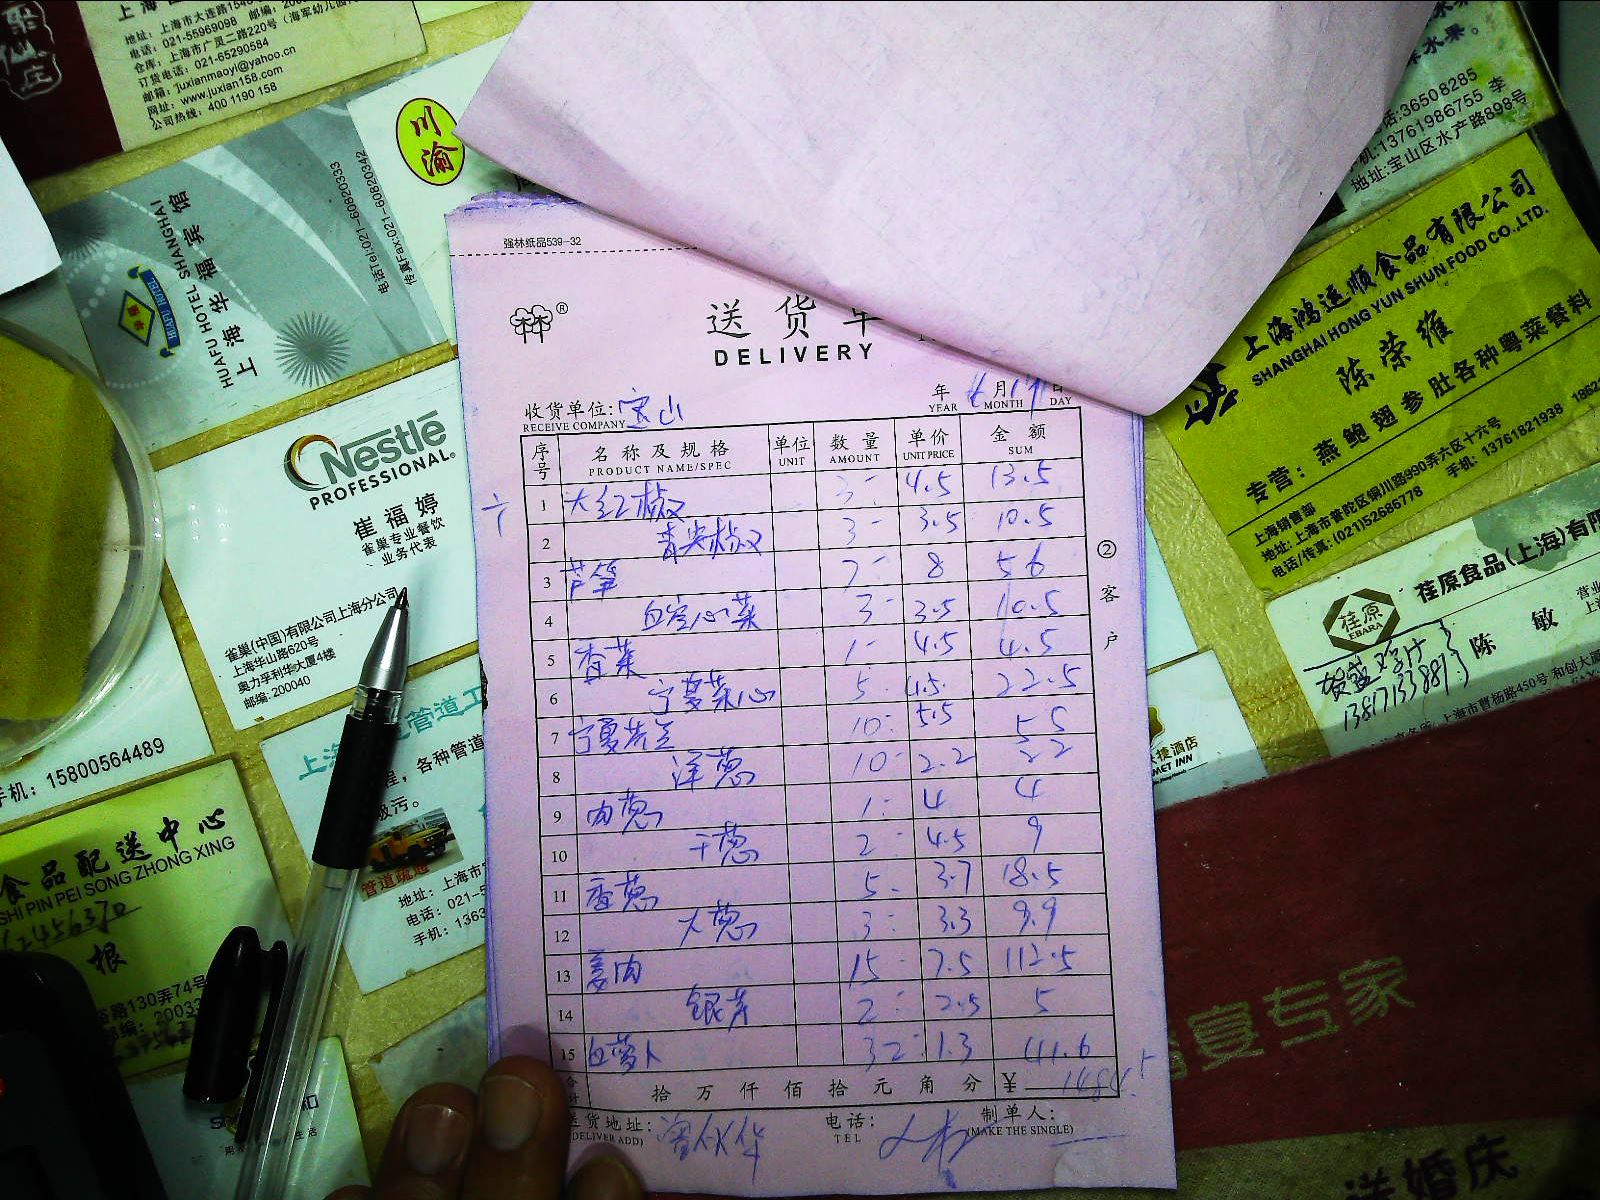 地址: 上海市大连路
电话: 021-55969098 邮编:
仓库: 上海市广灵二路220号 (海军幼儿园
订货电话: 021-65290584
邮箱: juxianmaoyi@yahoo.cn
网址: www.juxian158.com
公司热线: 400 1190 158
川渝
HUAFU HOTEL
HUAFU HOTEL SHANGHAI
上海华福宾馆
电话Tel:021-60820333
传真Fax:021-60820342
Nestlé
PROFESSIONAL®
崔福婷
雀巢专业餐饮
业务代表
雀巢(中国)有限公司上海分公司
上海华山路620号
奥力孚利华大厦4楼
邮编: 200040
手机: 15800564489
管道工
程, 各种管道
吸污。
管道疏通
地址: 上海市
电话: 021-5
手机: 1363
食品配送中心
SHI PIN PEI SONG ZHONG XING
根
路130弄74号
邮编: 20033
强林纸品539-32
林®
送货单
DELIVERY
收货单位: 宝山
RECEIVE COMPANY
年 月 日
YEAR MONTH DAY
序号 名称及规格 单位 数量 单价 金额
PRODUCT NAME/SPEC UNIT AMOUNT UNIT PRICE SUM
1 大红椒 3- 4.5 13.5
2 青尖椒 3- 3.5 10.5
3 芦笋 7- 8 56
4 白空心菜 3- 3.5 10.5
5 香菜 1- 4.5 4.5
6 宁夏菜心 5- 4.5 22.5
7 宁夏芥兰 10- 5.5 55
8 洋葱 10- 2.2 22
9 肉葱 1- 4 4
10 干葱 2- 4.5 9
11 香葱 5- 3.7 18.5
12 大葱 3- 3.3 9.9
13 姜肉 15- 7.5 112.5
14 银芽 2- 2.5 5
15 白萝卜 32- 1.3 41.6
拾 万 仟 佰 拾 元 角 分 ¥
送货地址: 电话: 制单人:
(DELIVER ADD) TEL (MAKE THE SINGLE)
② 客户
水果。
电话:36508285
手机:13761986755 李
地址:宝山区水产路898号
上海鸿运顺食品有限公司
SHANGHAI HONG YUN SHUN FOOD CO.,LTD.
陈荣维
专营: 燕鲍翅参肚各种粤菜餐料
上海销售部
地址: 上海市普陀区铜川路990弄六区十六号
电话/传真: (021)52685778 手机: 13761821938
荏原
EBARA
荏原食品(上海)有限
陈 敏
上海市曹杨路450号 和创大厦
捷酒店
MET INN
宴专家
婚庆